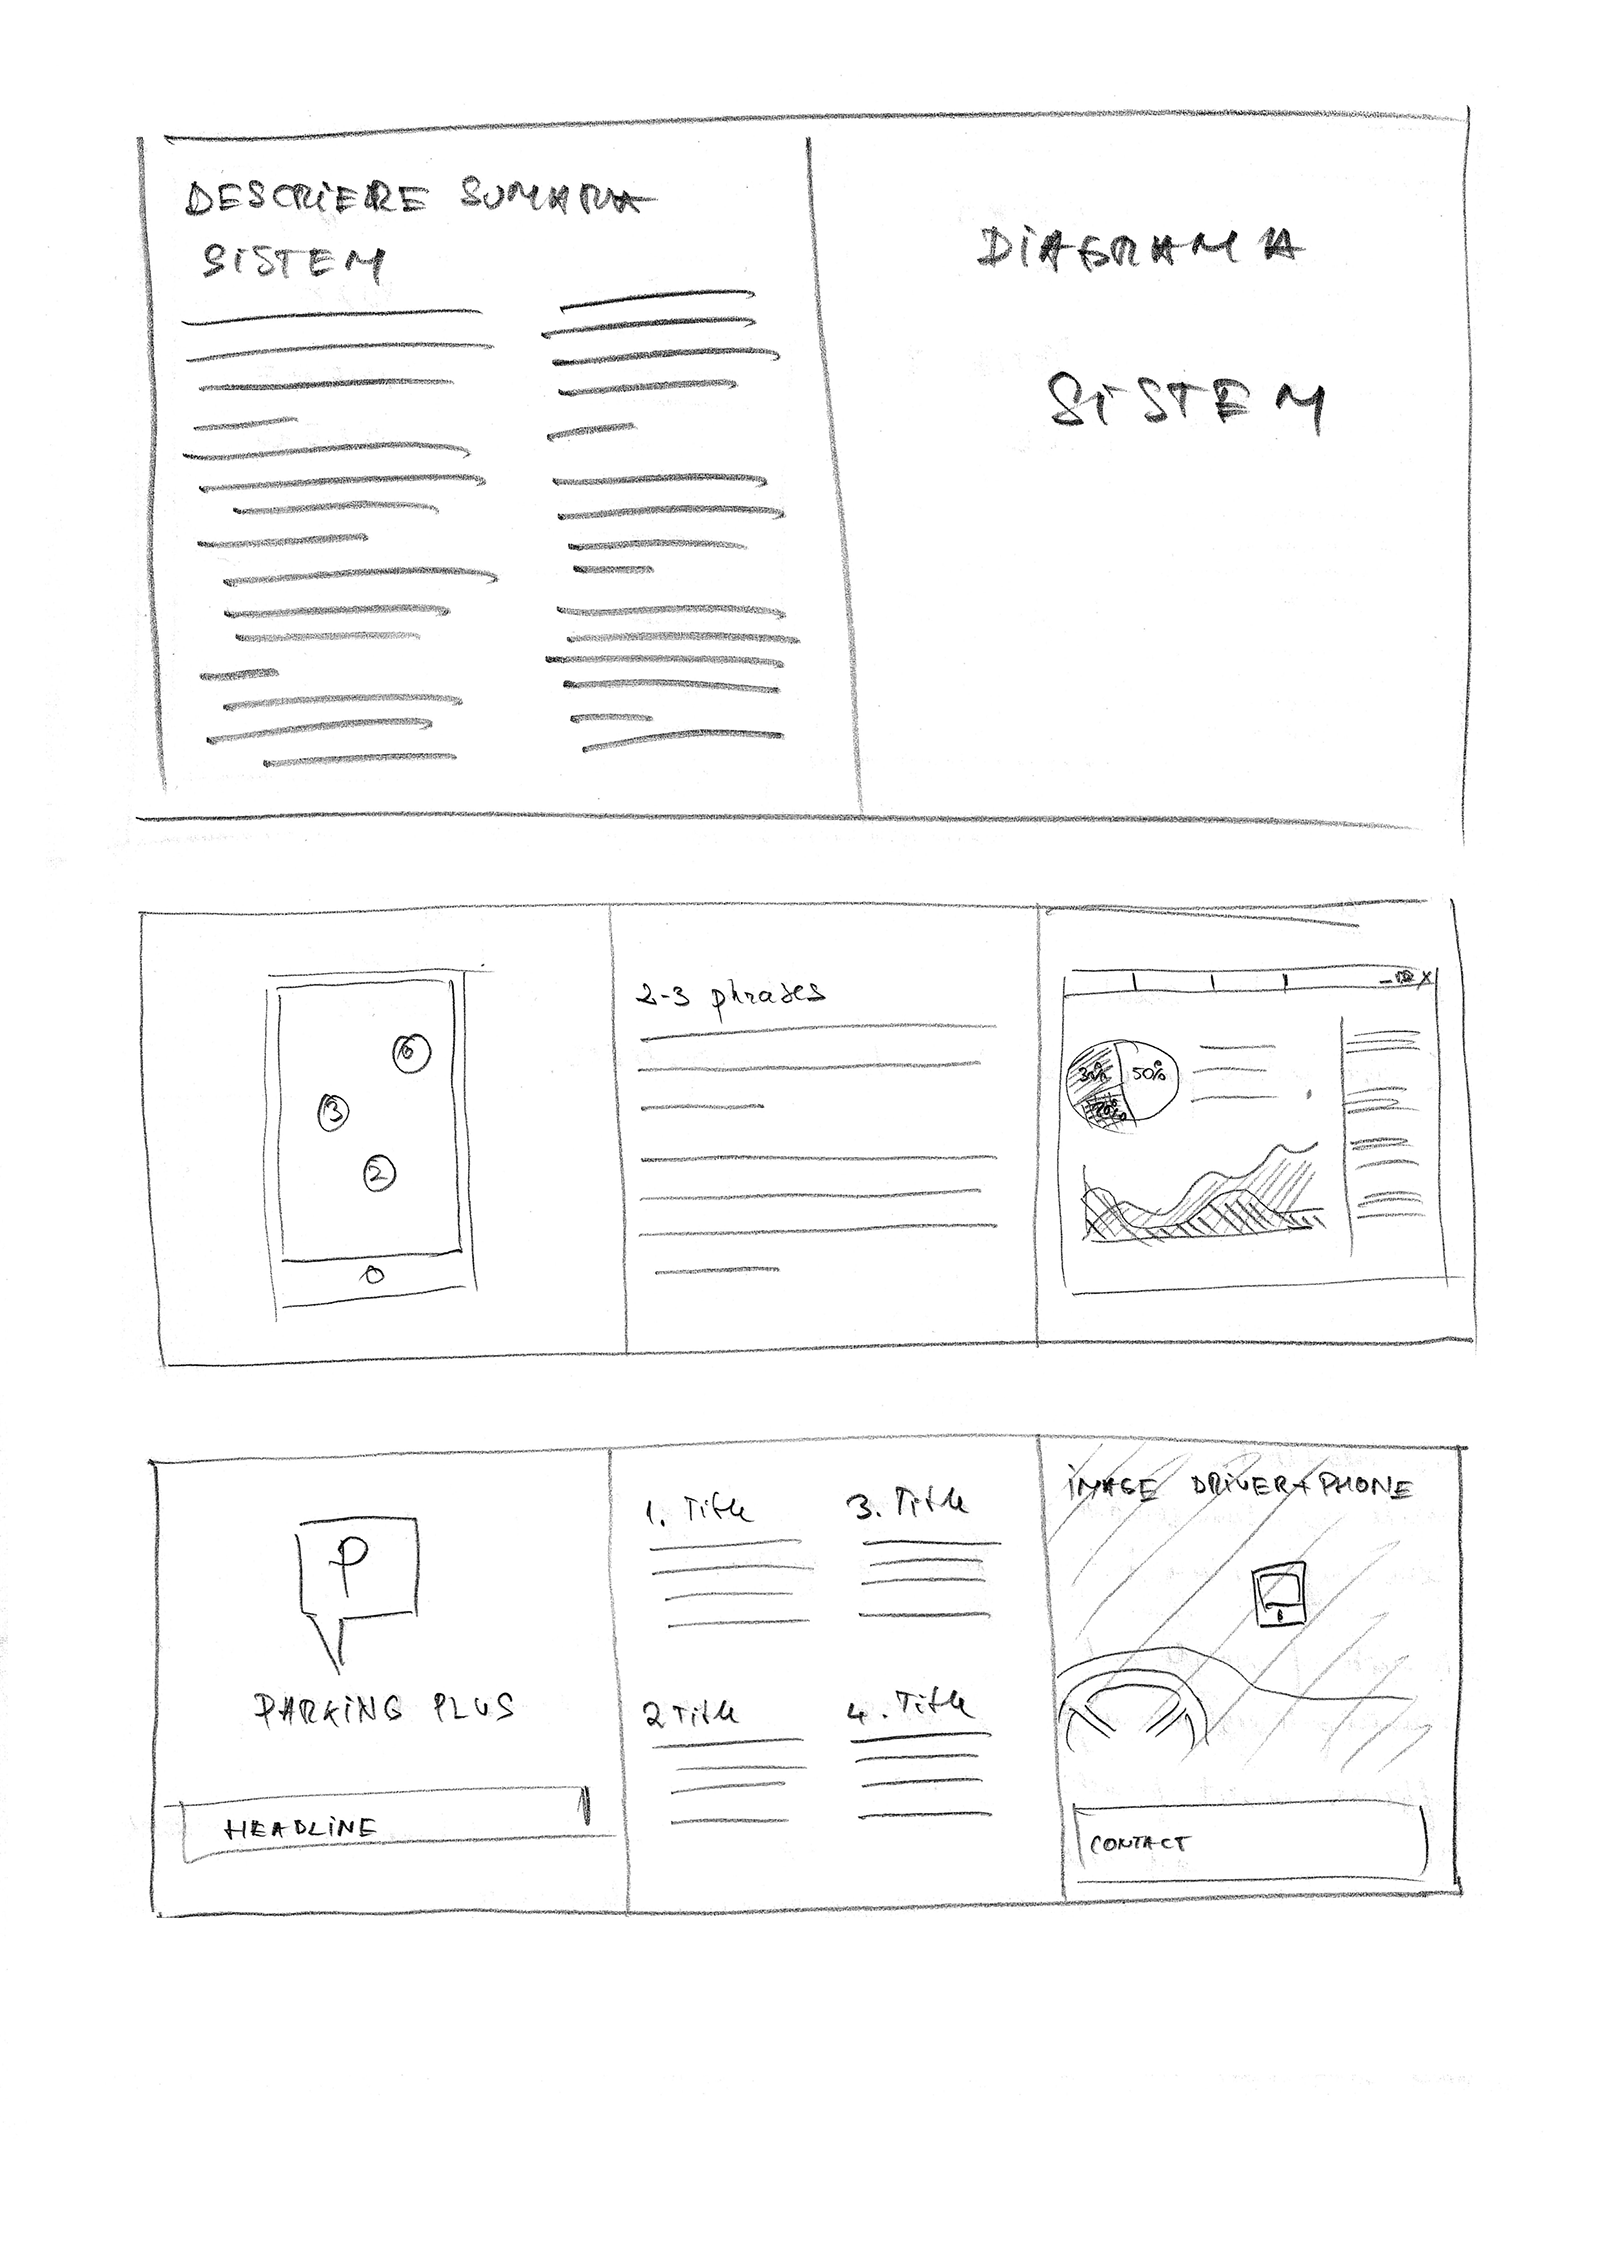 DESCRIERE SUMARA
SISTEM
DIAGRAMA
SISTEM
6
3
2
2-3 phrases
30% 50%
20%
X
P
PARKING PLUS
HEADLINE
1. Title
3. Title
2 Title
4. Title
IMAGE DRIVER+PHONE
CONTACT